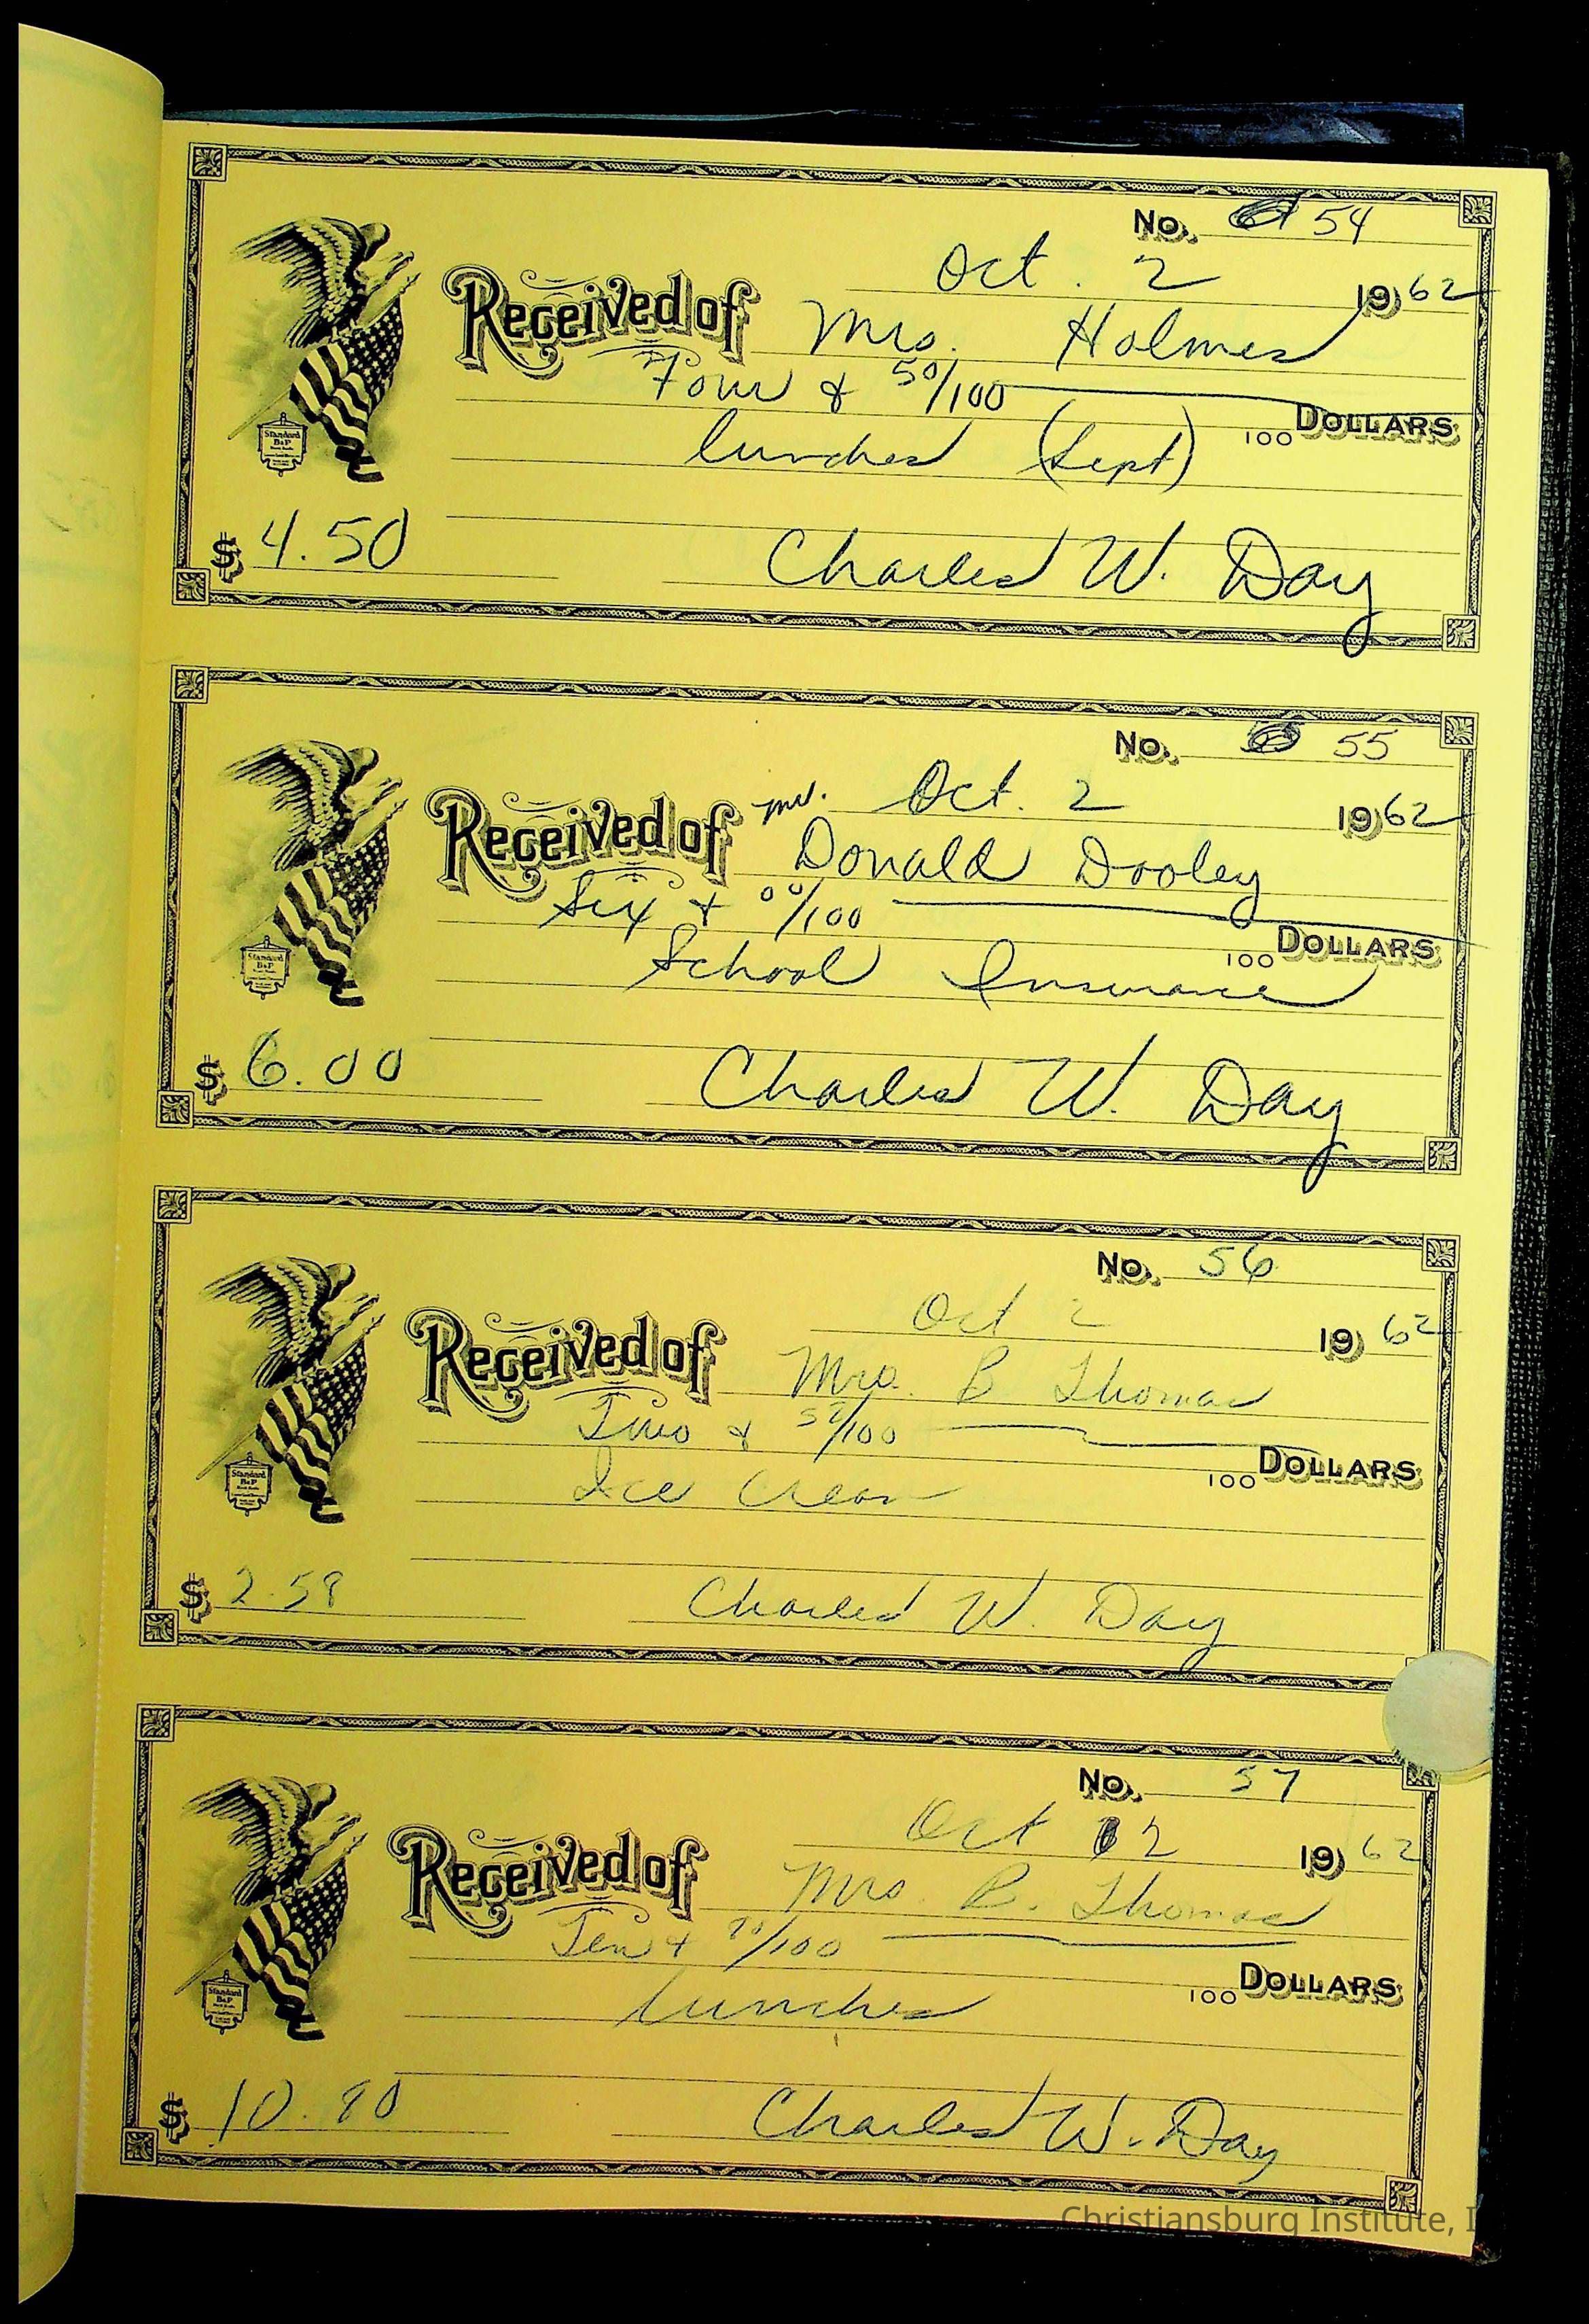 No. 54
Oct. 2 1962
Received of Mrs. Holmes
Four & 50/100
100 DOLLARS
lunches (Sept)
Standard
B&P
$ 4.50
Charles W. Day
No. 55
Mr. Oct. 2 1962
Received of Donald Dooley
Six & 00/100
100 DOLLARS
School Insurance
Standard
B&P
$ 6.00
Charles W. Day
No. 56
Oct 2 1962
Received of Mrs. B Thomas
Two & /100
100 DOLLARS
Ice Cream
Standard
B&P
$
Charles W. Day
No. 57
Oct 2 1962
Received of Mrs. B. Thomas
Ten & 90/100
100 DOLLARS
lunches
Standard
B&P
$ 10.90
Charles W. Day
Christiansburg Institute, I